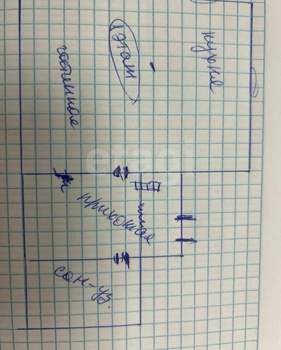 кухня
1 этаж
гостинная
прихожая
сан-уз.